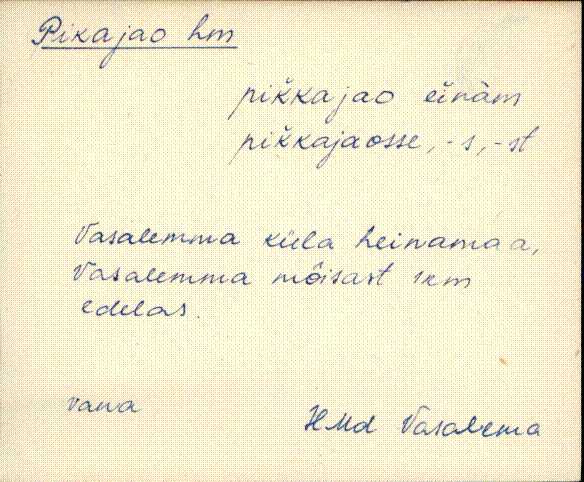 Pikajao hm
pikkajao einàm
pikkajaosse, -s, -st
Vasalemma küla heinamaa,
Vasalemma mõisast 1km
edelas.
vana
HMd Vasalema